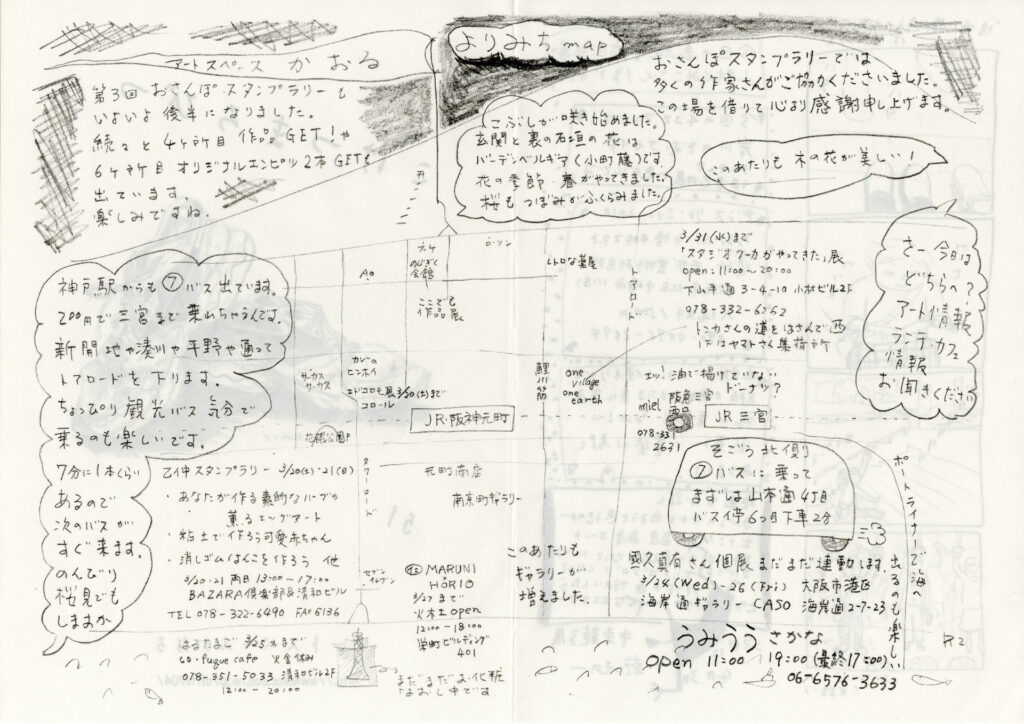 よりみちmap
アートスペース かおる
第3回 おさんぽスタンプラリーも
いよいよ後半になりました。
続々と4ヶ所目 作品GET!や
6ヶ所目 オリジナルエンピツ2本GETも
出ています。
楽しみですね。
おさんぽスタンプラリーでは
多くの作家さんがご協力くださいました。
この場を借りて心より感謝申し上げます。
こぶしが咲き始めました。
玄関と裏の石垣の花は
ハーデンベルギア(小町藤)です
花の季節・春がやってきました。
桜もつぼみがふくらみました。
このあたりも 木の花が美しい!
さー今日は
どちらへ?
アート情報
ランチ・カフェ
情報
お聞きください
3/31(水)まで
「スタジオクーカがやってきた」展
open:11:00〜20:00
下山手通3-4-10 小林ビル2F
078-332-6262
トンカさんの道をはさんで西
1Fはヤマトさん集荷所
トアロード
レトロな薬屋
ローソン
のじぎく
会館
ここでも
作品展
神戸駅からも⑦バス出ています。
200円で三宮まで乗れちゃうんです。
新開地や湊川や平野や通って
トアロードを下ります。
ちょっぴり観光バス気分で
乗るのも楽しいです。
7分に1本くらい
あるので
次のバスが
すぐ来ます。
のんびり
桜見でも
しますか
サーカス
サーカス
カレーの
ピンホイ
コロール
JR・阪神元町
花隈公園
鯉川筋
one
village
one
earth
エッ!油で揚げていない
ドーナッツ?
miel
阪急三宮
西口
078-331
2631
JR三宮
そごう北側
⑦バスに乗って
まずは山本通4丁目
バス停6つ目下車2分
ポートライナーで海へ
出るのも楽しい
タワーロード
元町商店
南京町ギャラリー
乙仲スタンプラリー 3/20(土)・21(日)
・あなたが作る素的なハーブの
薫るエッグアート
・粘土で作ろう可愛赤ちゃん
・消しゴムはんこを作ろう 他
3/20・21 両日 13:00〜17:00
BAZARA倶楽部&清和ビル
TEL 078-322-6490 FAX 6136
セブン
イレブン
MARUNI
HORIO
3/27まで
火木土open
12:00-18:00
栄町ビルディング
401
このあたりも
ギャラリーが
増えました。
國久真有さん個展まだまだ連動します。
3/24(Wed)-26(Fri) 大阪市港区
海岸通ギャラリーCASO 海岸通2-7-23
はるたまご 3/25 木まで
co・fuque cafe 火金休み
078-351-5033 清和ビル2F
12:00-20:00
まだまだお化粧
なおし中です。
うみうう さかな
open 11:00 19:00(最終17:00)
06-6576-3633